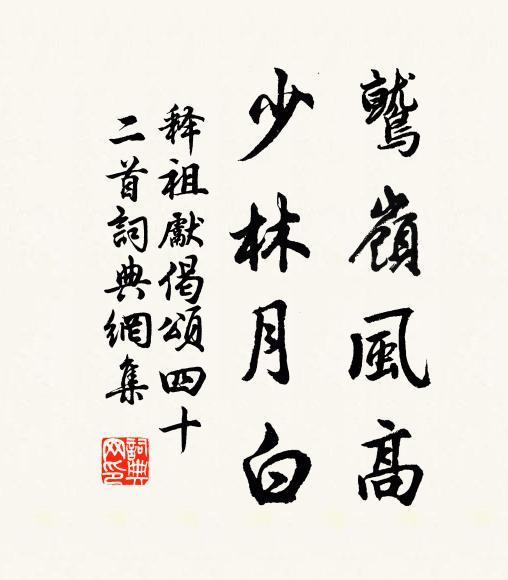 鷲嶺風高
少林月白
释祖獻偈頌四十
二首詞典網集
詞典
网印